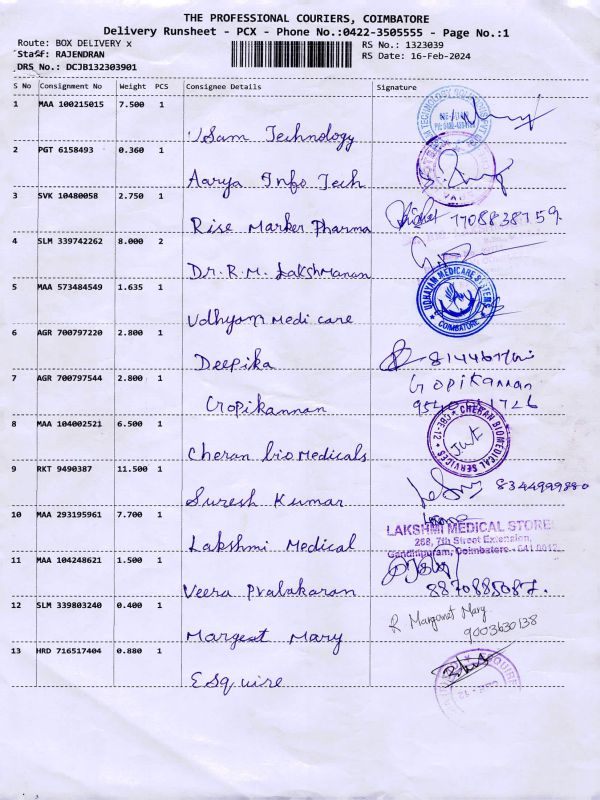 THE PROFESSIONAL COURIERS, COIMBATORE
Delivery Runsheet - PCX - Phone No.:0422-3505555 - Page No.:1
Route: BOX DELIVERY x
RS No.: 1323039
Staff: RAJENDRAN
RS Date: 16-Feb-2024
DRS No.: DCJB132303901
S No Consignment No Weight PCS Consignee Details Signature
1 MAA 100215015 7.500 1
Sam Technology
2 PGT 6158493 0.360 1
Aarya Info Tech
3 SVK 10480058 2.750 1
Rise Marker Pharma 7708838759.
4 SLM 339742262 8.000 2
Dr. R. M. Lakshmanan
5 MAA 573484549 1.635 1
UDHAYAM MEDICARE SYSTEMS
COIMBATORE
Udhyam Medi care
6 AGR 700797220 2.800 1
Deepika
7 AGR 700797544 2.800 1
Gopikannan
Cropikannan
8 MAA 104002521 6.500 1
CHERAN BIOMEDICAL SERVICES
CBE-12
Cheran bio Medicals
9 RKT 9490387 11.500 1
8344999880
Suresh Kumar
10 MAA 293195961 7.700 1
LAKSHMI MEDICAL STORE
268, 7th Street Extension,
Gandhipuram, Coimbatore - 641 0012.
Lakshmi Medical
11 MAA 104248621 1.500 1
Veera Pralakaran 8870885087.
12 SLM 339803240 0.400 1
R Margarat Mary
9003630138
Margest Mary
13 HRD 716517404 0.880 1
Esquire